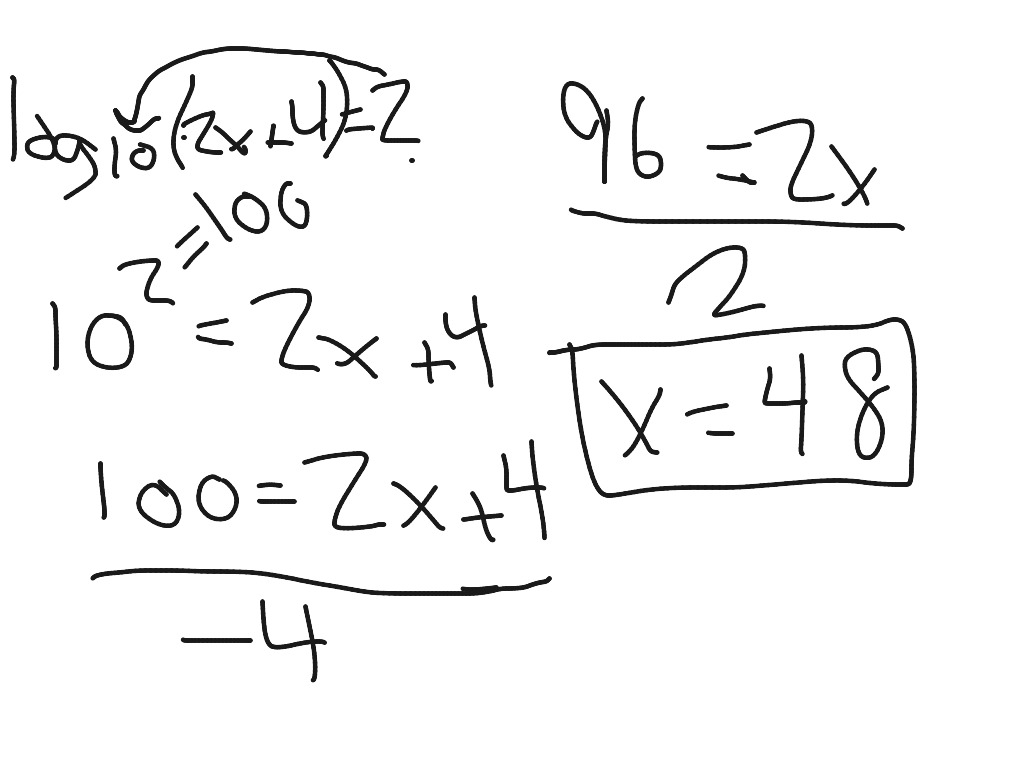 log₁₀(2x+4)=2
=100
10² = 2x+4
100=2x+4
-4
96=2x
2
x=48